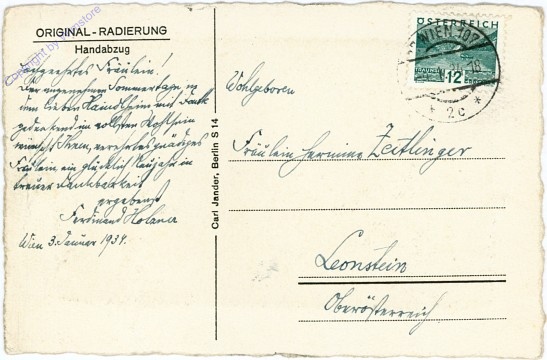 ORIGINAL - RADIERUNG
Handabzug
Copyright by
Hochgeehrtes Fräulein!
Der angenehmen Sommertage in
dem lieben Haindlheim mit Dank
gedenkend im vollsten Wohlsein
wünscht Ihnen, verehrtes gnädiges
Fräulein ein glücklich Neujahr in
treuer Dankbarkeit
ergebenst
Ferdinand
Wien 3. Januar 1934.
Carl Jander, Berlin S 14
ÖSTERREICH
12
WIEN 107
* 2c *
Wohlgeboren
Fräulein Hermine Zeitlinger
Leonstein
Oberösterreich